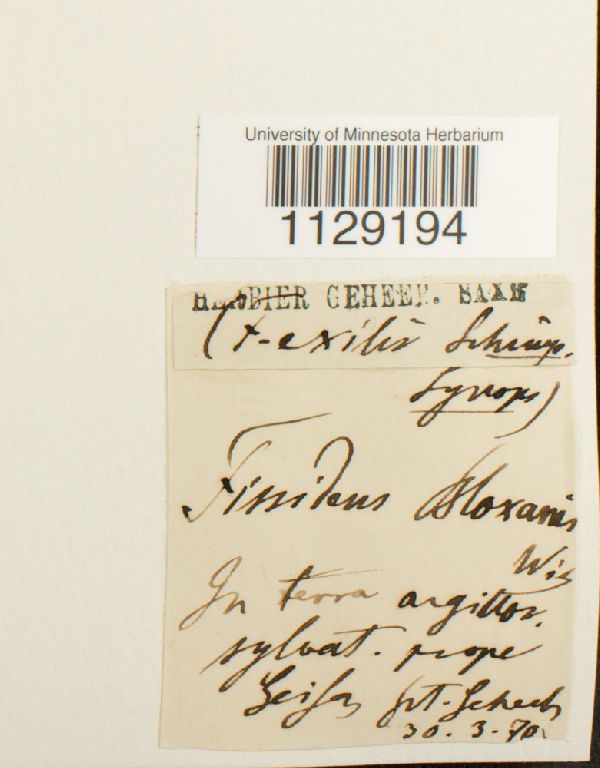 University of Minnesota Herbarium
1129194
HERBIER GEHEEB. SAXE
(F. exilis Schimp.
Synops)
Fissidens Bloxami
Wils
In terra argillos.
sylvat. prope
Geisa
30. 3. 70.